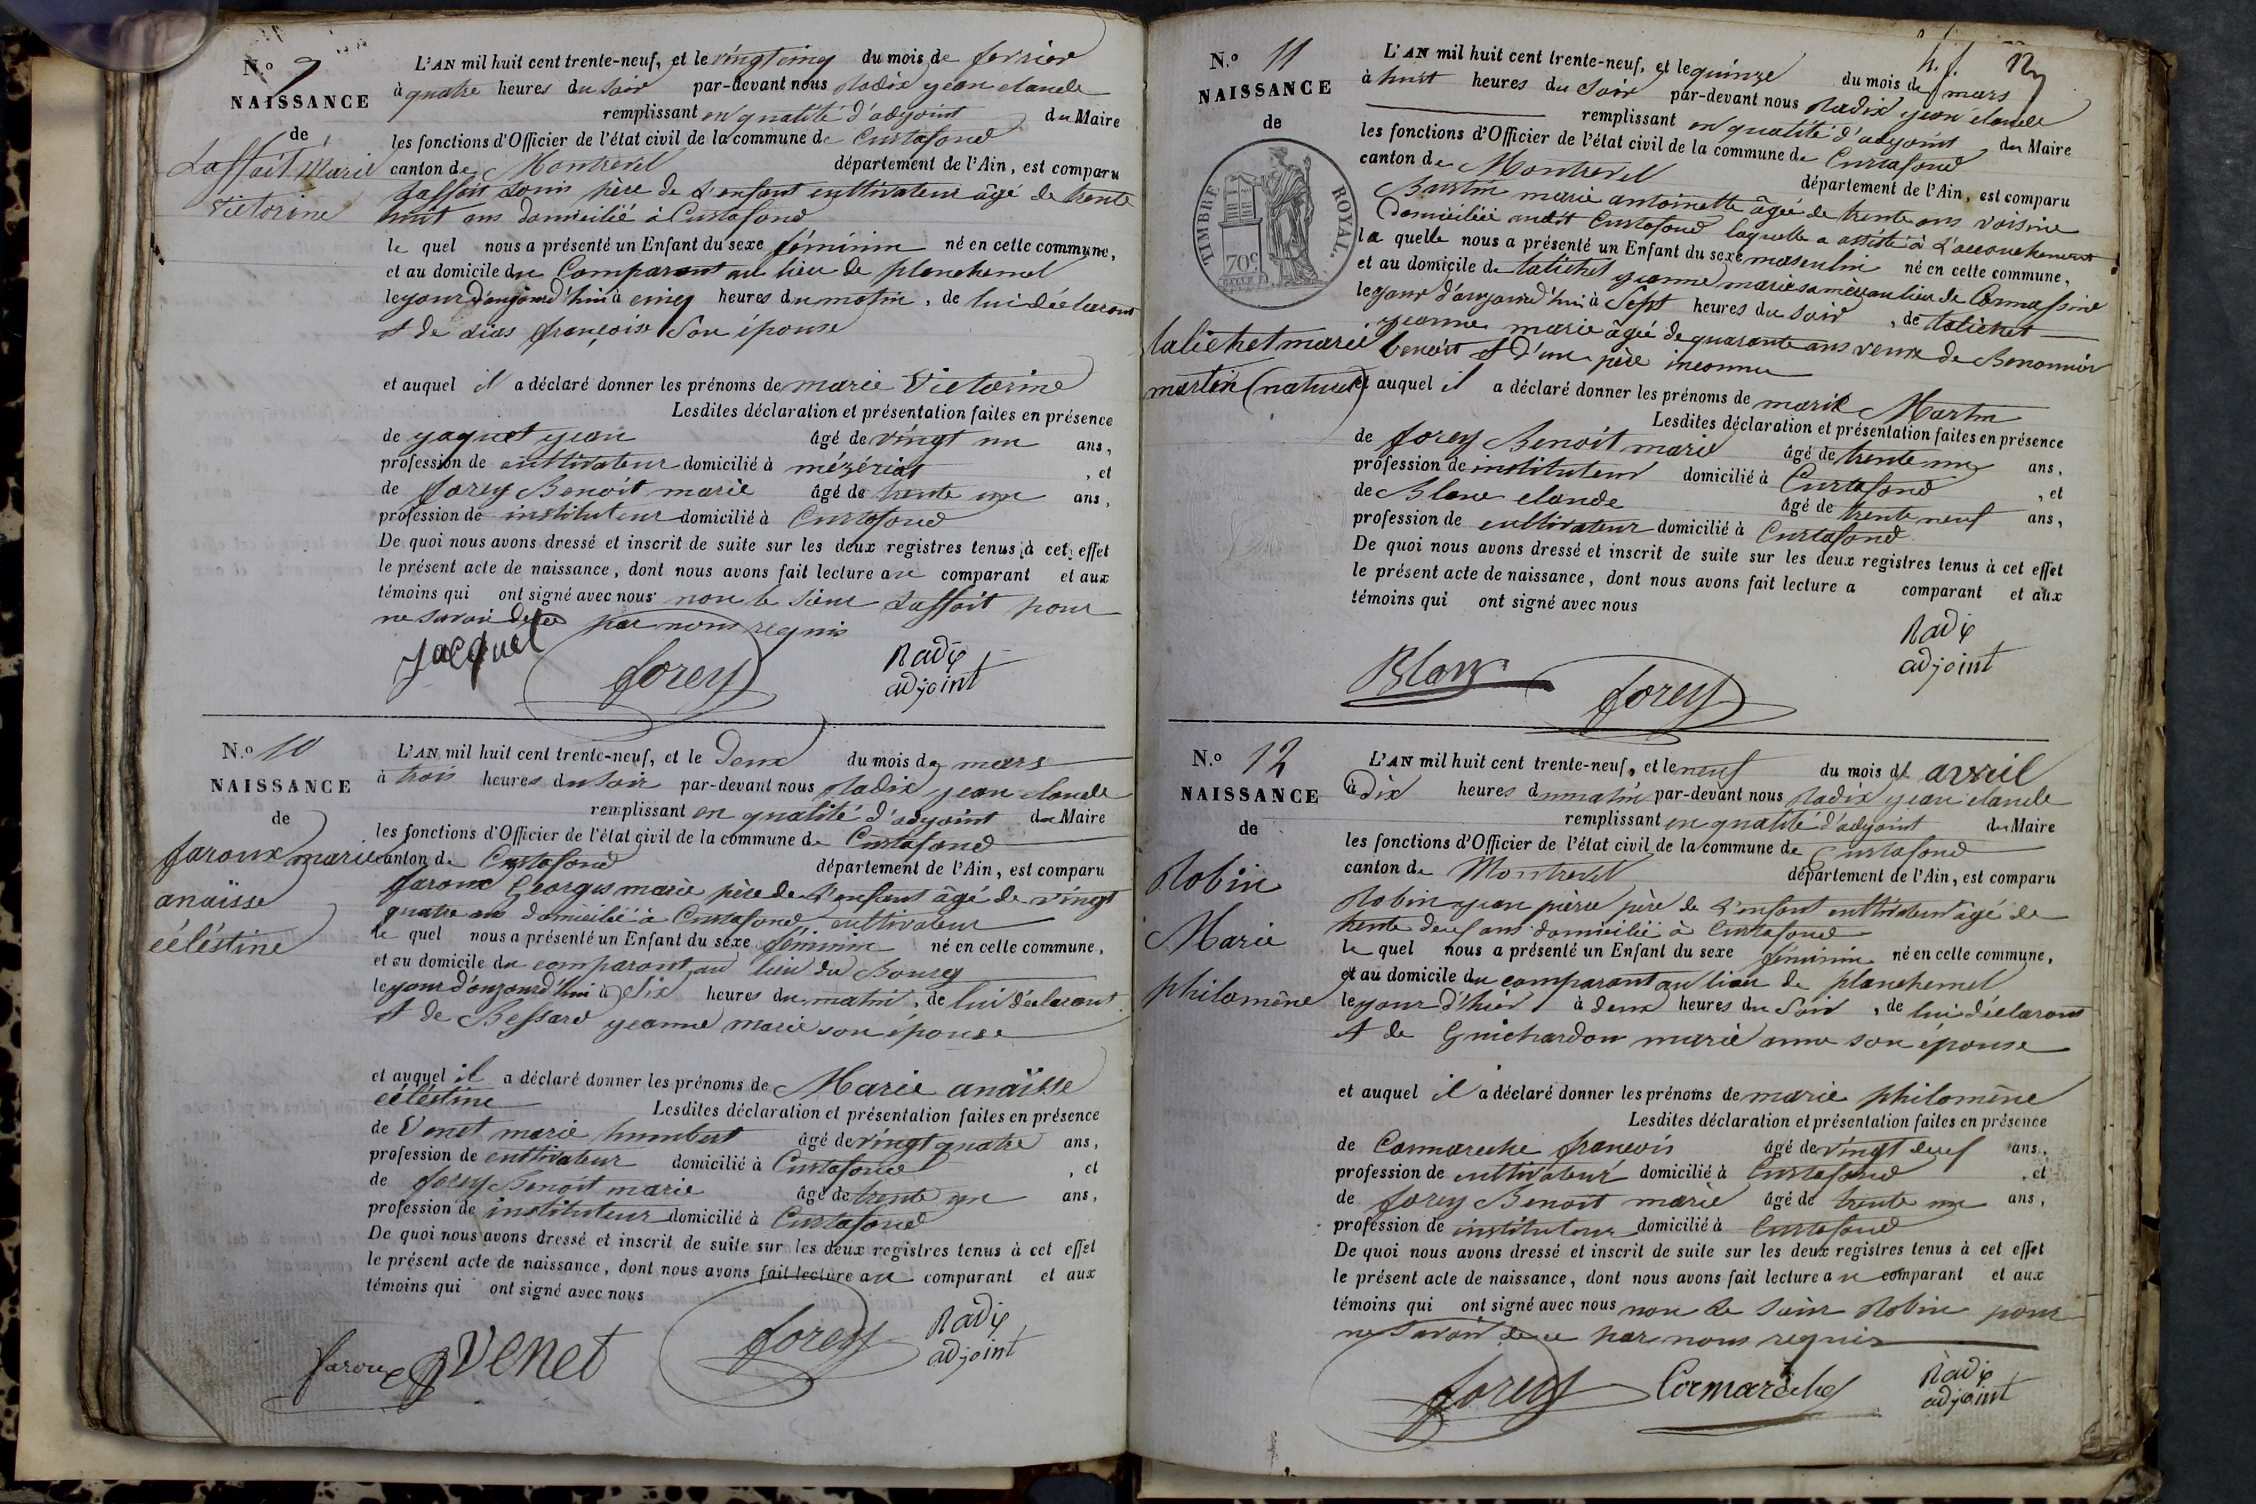 N.º 9
NAISSANCE
de
Laffait Marie
Victorine
L'AN mil huit cent trente-neuf, et le vingt cinq du mois de fevrier
à quatre heures du soir par-devant nous Radix jean claude
remplissant en qualité d'adjoint du Maire
les fonctions d'Officier de l'état civil de la commune de Curtafond
canton de Montrevel département de l'Ain, est comparu
Laffait Louis père de l'enfant cultivateur âgé de trente
huit ans domicilié à Curtafond
le quel nous a présenté un Enfant du sexe féminin né en cette commune,
et au domicile du Comparant au lieu de planchemel
le jour d'aujourd'hui à cinq heures du matin, de lui déclarant
et de françoise Son épouse
et auquel il a déclaré donner les prénoms de marie Victorine
Lesdites déclaration et présentation faites en présence
de jaquet jean âgé de vingt un ans,
profession de cultivateur domicilié à mézériat, et
de forey Benoit marie âgé de trente un ans,
profession de instituteur domicilié à Curtafond
De quoi nous avons dressé et inscrit de suite sur les deux registres tenus à cet effet
le présent acte de naissance, dont nous avons fait lecture au comparant et aux
témoins qui ont signé avec nous non le sieur Laffait pour
ne savoir de ce par nous requis
Jacquet forey Radix
adjoint
N.º 10
NAISSANCE
de
faroux marie
anaïsse
céléstine
L'AN mil huit cent trente-neuf, et le Deux du mois de mars
à trois heures du soir par-devant nous Radix jean claude
remplissant en qualité d'adjoint du Maire
les fonctions d'Officier de l'état civil de la commune de Curtafond
canton de Curtafond département de l'Ain, est comparu
faroux Georges marie père de l'enfant âgé de vingt
quatre ans domicilié à Curtafond cultivateur
le quel nous a présenté un Enfant du sexe féminin né en cette commune,
et au domicile du comparant au lieu du Bourg
le jour d'aujourd'hui à dix heures du matin, de lui déclarant
et de Bessard jeanne marie son épouse
et auquel il a déclaré donner les prénoms de Marie anaïsse
céléstine Lesdites déclaration et présentation faites en présence
de Venet marie humbert âgé de vingt quatre ans,
profession de cultivateur domicilié à Curtafond, et
de forey Benoit marie âgé de trente un ans,
profession de instituteur domicilié à Curtafond
De quoi nous avons dressé et inscrit de suite sur les deux registres tenus à cet effet
le présent acte de naissance, dont nous avons fait lecture au comparant et aux
témoins qui ont signé avec nous
faroux Venet forey Radix
adjoint
N.º 11
NAISSANCE
de
TIMBRE ROYAL.
70c
talichet marie
martin (naturel)
L'AN mil huit cent trente-neuf, et le quinze du mois de mars
à huit heures du soir par-devant nous Radix jean claude
remplissant en qualité d'adjoint du Maire
les fonctions d'Officier de l'état civil de la commune de Curtafond
canton de Montrevel département de l'Ain, est comparu
marie antoinette âgée de trente ans voisine
Domiciliée audit Curtafond laquelle a assisté à l'accouchement
la quelle nous a présenté un Enfant du sexe masculin né en cette commune,
et au domicile de talichet jeanne marie sa mère au lieu de
le jour d'aujourd'hui à Sept heures du soir, de talichet
jeanne marie âgée de quarante ans veuve de
benoit et d'un père inconnu
et auquel il a déclaré donner les prénoms de marie Martin
Lesdites déclaration et présentation faites en présence
de forey Benoit marie âgé de trente un ans,
profession de instituteur domicilié à Curtafond, et
de Blanc claude âgé de trente neuf ans,
profession de cultivateur domicilié à Curtafond
De quoi nous avons dressé et inscrit de suite sur les deux registres tenus à cet effet
le présent acte de naissance, dont nous avons fait lecture a comparant et aux
témoins qui ont signé avec nous
Blanc forey Radix
adjoint
N.º 12
NAISSANCE
de
Robin
Marie
philomène
L'AN mil huit cent trente-neuf, et le neuf du mois de avril
à dix heures du matin par-devant nous Radix jean claude
remplissant en qualité d'adjoint du Maire
les fonctions d'Officier de l'état civil de la commune de Curtafond
canton de Montrevel département de l'Ain, est comparu
Robin jean pierre père de l'enfant cultivateur âgé de
trente neuf ans domicilié à Curtafond
le quel nous a présenté un Enfant du sexe féminin né en cette commune,
et au domicile du comparant au lieu de planchemel
le jour d'hier à deux heures du Soir, de lui déclarant
et de Guichardon marie anne son épouse
et auquel il a déclaré donner les prénoms de marie philomène
Lesdites déclaration et présentation faites en présence
de Carmareche francois âgé de vingt neuf ans,
profession de cultivateur domicilié à Curtafond, et
de forey Benoit marie âgé de trente un ans,
profession de instituteur domicilié à Curtafond
De quoi nous avons dressé et inscrit de suite sur les deux registres tenus à cet effet
le présent acte de naissance, dont nous avons fait lecture au comparant et aux
témoins qui ont signé avec nous non le sieur Robin pour
ne savoir de ce par nous requis
forey Carmarèche Radix
adjoint